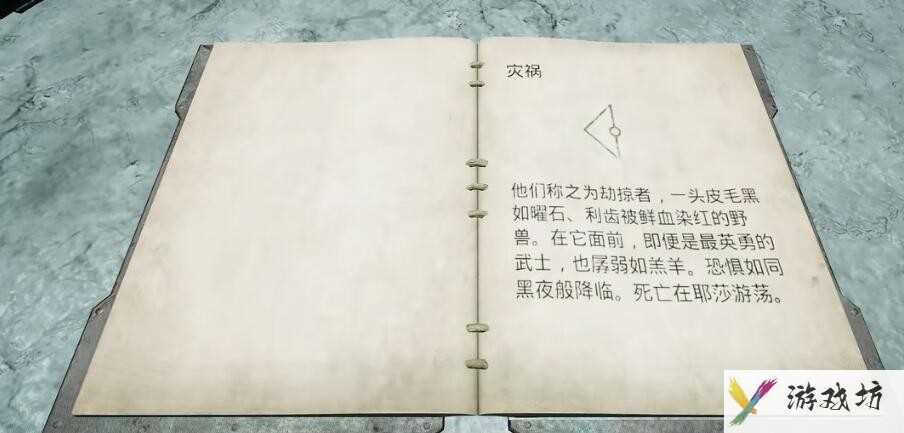 灾祸
他们称之为劫掠者，一头皮毛黑
如曜石、利齿被鲜血染红的野
兽。在它面前，即便是最英勇的
武士，也孱弱如羔羊。恐惧如同
黑夜般降临。死亡在耶莎游荡。
游戏坊